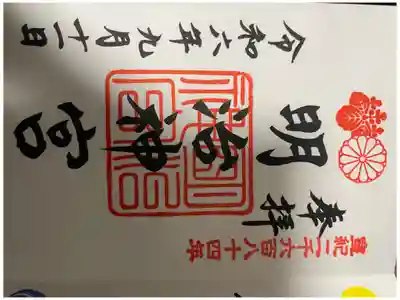 奉拝
皇紀二千六百八十四年
明治神宮
令和六年九月十一日